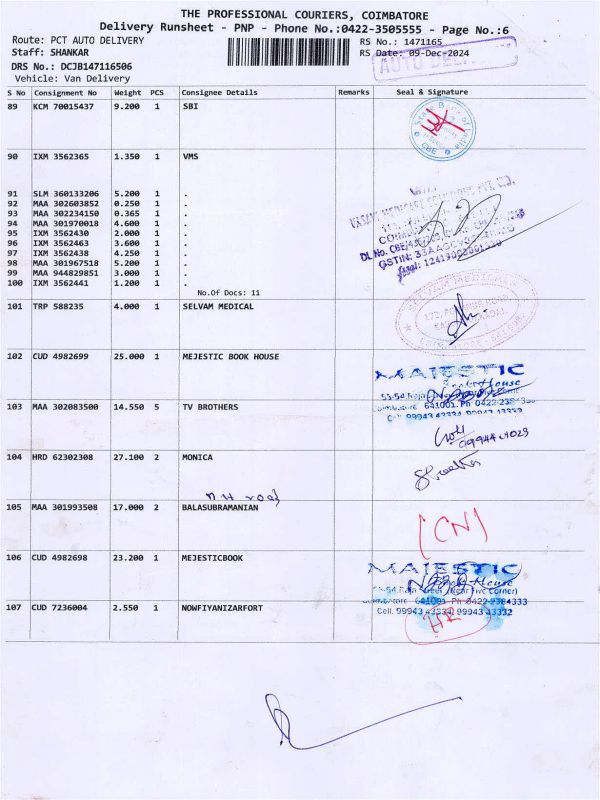 THE PROFESSIONAL COURIERS, COIMBATORE
Delivery Runsheet - PNP - Phone No.:0422-3505555 - Page No.:6
Route: PCT AUTO DELIVERY RS No.: 1471165
Staff: SHANKAR RS Date: 09-Dec-2024
AUTO DELIVERY
DRS No.: DCJB147116506
Vehicle: Van Delivery
S No Consignment No Weight PCS Consignee Details Remarks Seal & Signature
89 KCM 70015437 9.200 1 SBI
State Bank of India
CBE
90 IXM 3562365 1.350 1 VMS
91 SLM 360133206 5.200 1 .
92 MAA 302603852 0.250 1 .
93 MAA 302234150 0.365 1 .
94 MAA 301970018 4.600 1 .
95 IXM 3562430 2.000 1 .
96 IXM 3562463 3.600 1 .
97 IXM 3562438 4.250 1 .
98 MAA 301967518 5.200 1 .
99 MAA 944829851 3.000 1 .
100 IXM 3562441 1.200 1 .
No.Of Docs: 11
DL No. CBE
GSTIN: 33AA
101 TRP 588235 4.000 1 SELVAM MEDICAL
SELVAM MEDICALS
102 CUD 4982699 25.000 1 MEJESTIC BOOK HOUSE
MAJESTIC
Book House
53-54 Raja Street
Coimbatore 641001. Ph 0422-2384333
Cell. 99943 43334, 99943 43332
103 MAA 302083500 14.550 5 TV BROTHERS
104 HRD 62302308 27.100 2 MONICA
105 MAA 301993508 17.000 2 BALASUBRAMANIAN
(CN)
106 CUD 4982698 23.200 1 MEJESTICBOOK
MAJESTIC
Book House
53-54 Raja Street (Near Five Corner)
Coimbatore 641001. Ph 0422-2384333
Cell. 99943 43334, 99943 43332
107 CUD 7236004 2.550 1 NOWFIYANIZARFORT